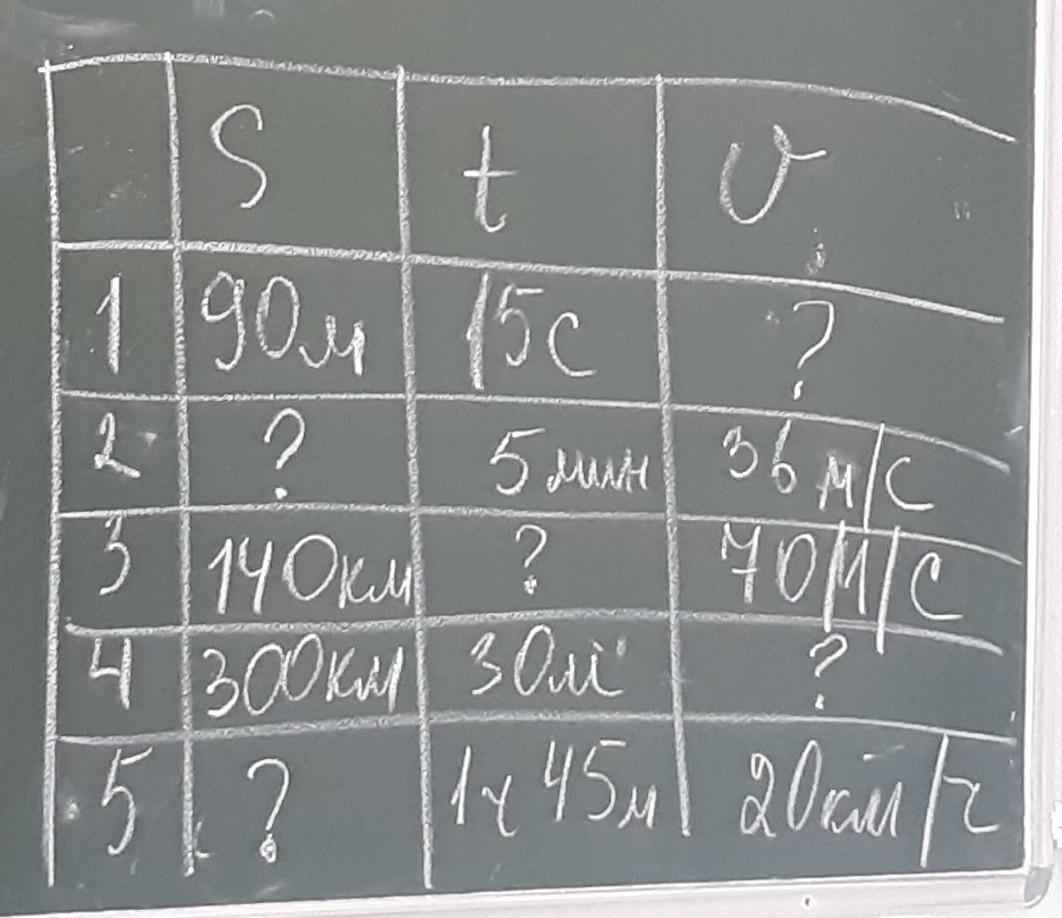 S t υ
1 90м 15с ?
2 ? 5 мин 36 м/с
3 140км ? 70м/с
4 300км 30м ?
5 ? 1ч 45м 20км/ч